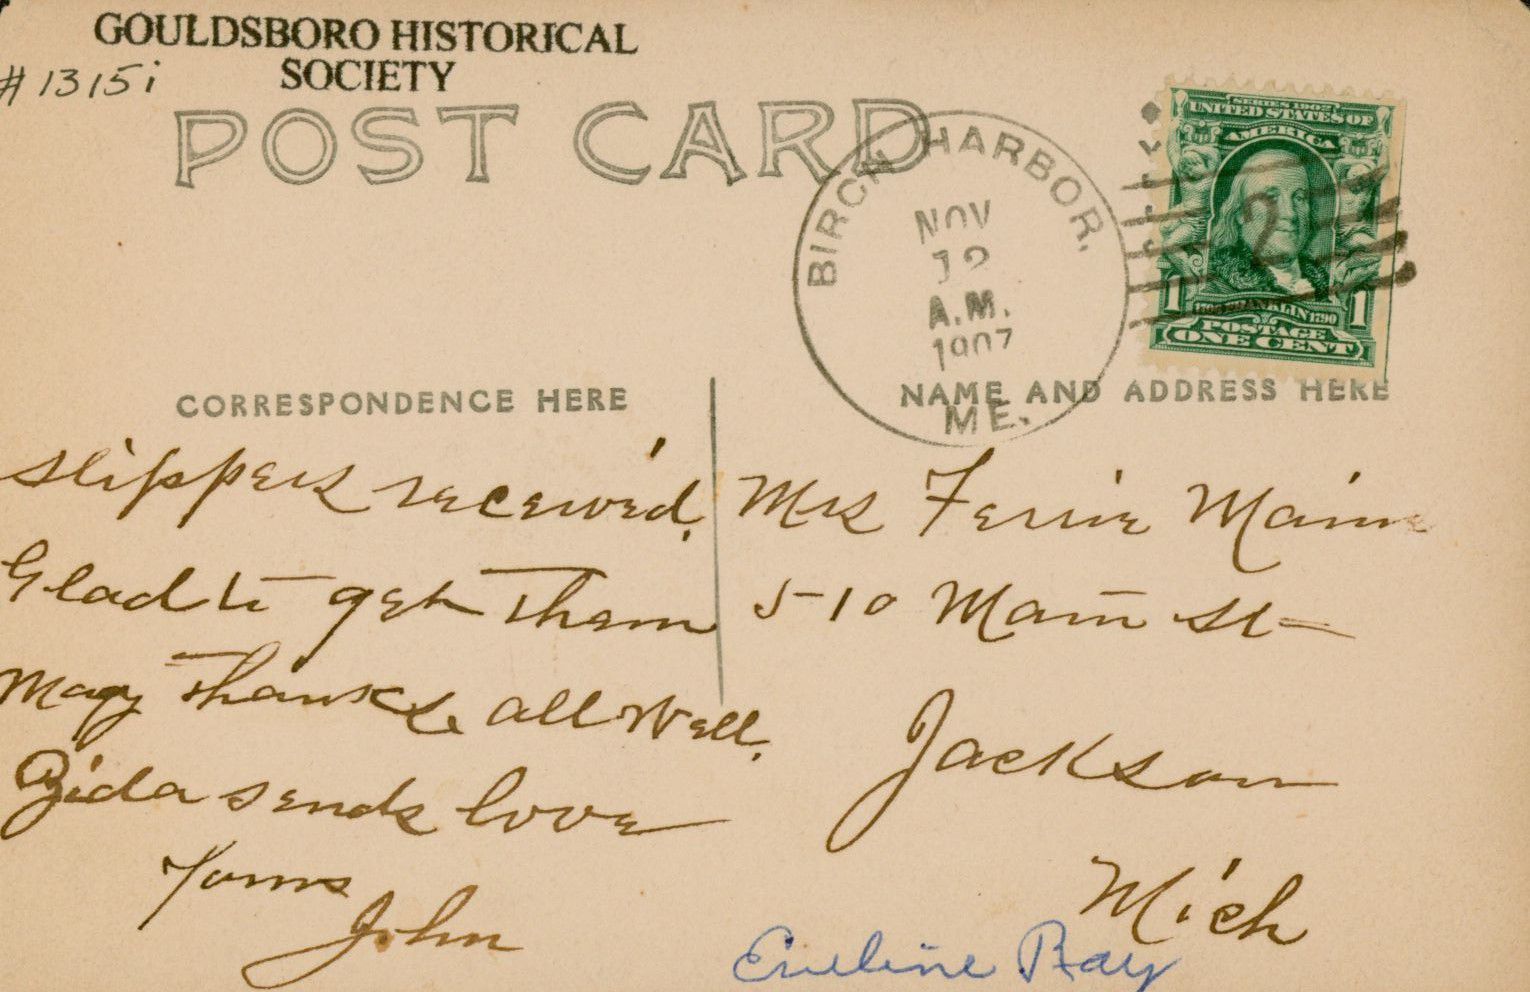 GOULDSBORO HISTORICAL
SOCIETY
# 1315i
POST CARD
BIRCH HARBOR,
NOV
12
A.M.
1907
ME.
SERIES 1902
UNITED STATES OF
AMERICA
2
1 1
FRANKLIN 1790
POSTAGE
ONE CENT
CORRESPONDENCE HERE
NAME AND ADDRESS HERE
Slippers received.
Glad to get them
Many thanks all well.
sends love
Yours
John
Mrs Ferrie Main
510 Main St
Jackson
Mich
Eveline Ray